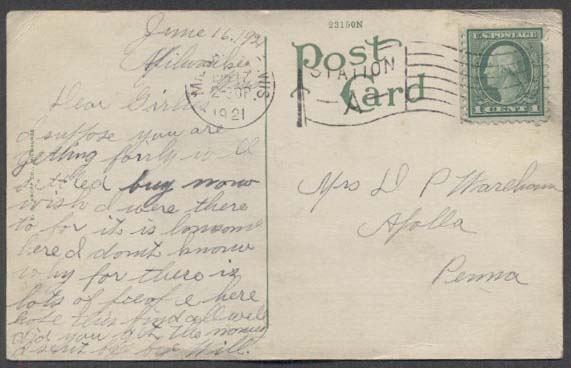 June 16, 1921
Milwaukee
Dear Girlies
I suppose you are
getting fairly well
setteled buy now
wish I were there
to for it is lonsome
here I dont know
why for there is
lots of peopl e here
hope this find all well
did you get the money
I sent bye bye Will.
23150N
Post
Card
MIL WIS
17
2-30P
1921
STATION
A
U.S. POSTAGE
1 CENT 1
Mrs D P
Apolla
Penna